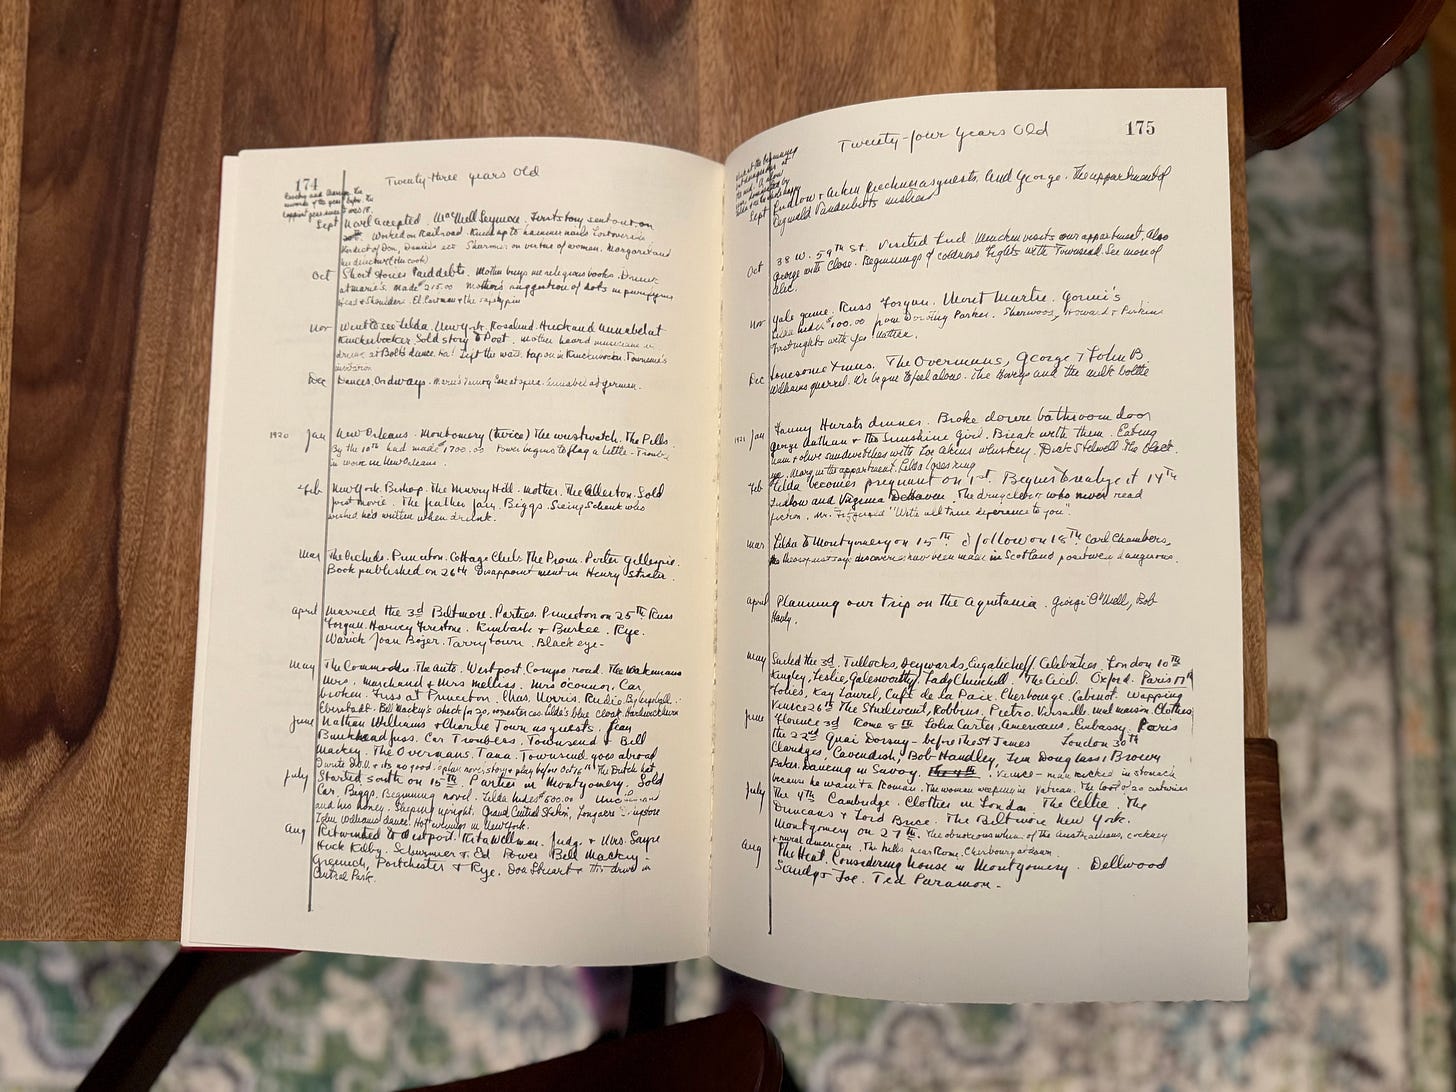 174
Twenty-three years Old
Sept Novel accepted. Mac Neill Seymore. First story sent out on
Worked on Railroad. up to hammer nails
of Don, Daniels Sharmer on virtue of women. Margaret and
(the cook)
Oct Short stories Paid debts. Mother buys me religious books. Dinner
at marie's. Made $215.00 Mother's suggestion of
Head & Shoulders.
Nov Went to see Zelda. New York. Rosalind. Huck and Annabel at
Knickerbocker. Sold story to Post. Mother heard musicians
at Bolt's dance. ha! Left the water tap on in Knickerbocker. Townsend's
Dec Dances. Ordways.
1920 Jan New Orleans. Montgomery (twice) The wristwatch. The Pills.
By the 10th had made 1700.00 Power begins to flag a little - Trouble
in work in New Orleans.
Feb New York. Bishop. The Murry Hill. Mother. The Allerton. Sold
first movie. The feather fan. Biggs. Seeing Schenk who
wished he'd written when drunk.
Mar The Orchids. Princeton. Cottage Club. The Prom. Porter Gillespie.
Book published on 26th Disappointment in Henry Strater.
April Married the 3d Biltmore. Parties. Princeton on 25th Russ
Forgan. Harvey Firestone. Kimbark & Burkee. Rye.
Warick Joan Bojer. Tarrytown. Black eye-
May The Commodore. The auto. Westport. Compo road. The Wakemans
Mrs. Marchand & Mrs Melliss. Mrs O'Connor. Car
broken. Fuss at Princeton. Chas. Norris. Rudie
Eberstadt. Bill Mackey's check for 20, Zelda's blue cloak
June Nathan Williams & Charlie Town as guests. Jean
Bankhead fuss. Car Troubles. Townsend & Bill
Mackey. The Overmans. Tana. Townsend goes abroad
I wrote & its no good The Dutch
July Started south on 15th. Parties in Montgomery. Sold
Car. Biggs. Beginning novel. Zelda hides $500.00
and his honey. Sleeping upright. Grand Central Station,
John Williams' dance. in New York.
Aug Returned to Westport. Rita Wellman. Judge & Mrs. Sayre
Huck Kilby. Schurmier & Ed Power Bill Mackey-
Greenich, Portchester & Rye. Don Stuart & the drive in
Central Park.
Twenty-four Years Old
175
Sept Ludlow & guests. And George. The appartment of
Reginald Vanderbilt's
Oct 38 W. 59th St. Visited Mencken visits our appartment, also
George with Close. Beginnings of coldness. Fights with Townsend. See more of
Alec.
Nov Yale game. Russ Forgan. Mont Martre. Gorini's
Zelda hides $100.00 Dorothy Parker. Sherwood, Howard & Perkins
First nights with Geo Nathan.
Dec Lonesome Xmas. The Overmans, George & John B.
Williams quarrel. We begin to feel alone. The Hoveys and the milk bottle
1921 Jan Fanny Hursts dinner. Broke down bathroom door
George Nathan & the Sunshine Girl. Break with them. Eating
ham & olive sandwitches with Zoe Akins whiskey. Dick Stilwell the black
eye. in the appartment. Zelda loses ring
Feb Zelda becomes pregnant on 1st. Begins to realize it 14th
Ludlow and Virginia DeHaven. The drug clerk who never read
fiction. Mr. Fitzgerald "With all true deference to you".
Mar Zelda to Montgomery on 15th. I follow on 18th. Carl Chambers,
discoveries have been made in Scotland dangerous.
April Planning our trip on the Aquitania. George O'Neill, Bob
Handy.
May Sailed the 3d. Tullocks, Heywards, Engalicheff. Celebrities. London 10th
Kingley, Leslie, Galesworthy, Lady Churchill. The Cecil. Oxford. Paris 17th
Folies, Kay Laurel, Café de La Paix. Cherbourge. Cabinot. Wapping
Venice 26th The Sturtevent, Robbins. Pietro. Versaille malmaison. Clothes
June Florence 3d Rome 8th John Carter, Americans, Embassy Paris
the 22nd Quai Dorsay - before the St James London 30th
Claridges, Cavendish, Bob Handley, Tim Douglass & Brown
Baker. Dancing in Savoy. Venice - man kicked in stomach
because he wasn't a Roman. The women weeping in Vatican. The loot of 20 centuries
July The 4th Cambridge. Clothes in London. The Celtic. The
Duncans & Lord Brice. The Biltmore New York.
Montgomery on 27th. The obnoxiousness of the Australians, cockney
& rural american. The hills near Rome. Cherbourg at dawn.
Aug The Heat. Considering house in Montgomery. Dellwood
Sandy & Joe. Ted Paramore-